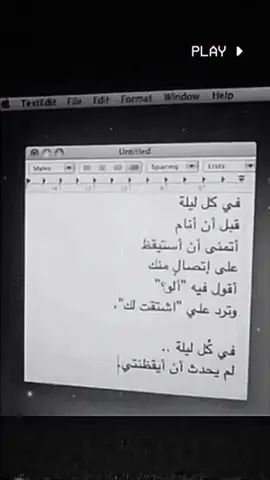 PLAY
TextEdit File Edit Format Window Help
Untitled
Styles Spacing Lists
في كل ليلة
قبل أن أنام
أتمنى أن أستيقظ
على إتصالٍ منك
أقول فيه "ألو؟"
وترد علي "اشتقت لك".
في كُل ليلة ..
لم يحدث أن أيقظتني.